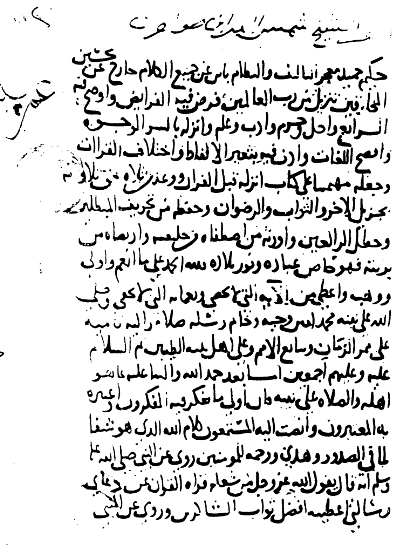 الشيخ شمس الدين
حكيم حميد معجز التاليف والنظام باين عن جميع الكلام خارج عن
المخلوقين تنزيل من رب العالمين فرض فيه الفرايض واوضح فيه
الشرايع واحل وحرم وادب وعلم وانزله بايسر الوجوه
وافصح اللغات واذن فيه بتغير الالفاظ واختلاف القراات
وجعله مهيمنا على كل كتاب انزله قبل القران ووعد من تلاه حق تلاوته
بجزيل الاجر والثواب والرضوان وحفظه من تحريف المبطلين
وخطل الزايغين واورثه من اصطفاه من خليقته وارتضاه من
بريته فهو خاص عباده ونور بلاده فله الحمد على ما انعم واولى
ووهب واعطى من الايه التي لا تحصى ونعمايه التي لا تخفى وصلى
الله على نبيه محمد امين وحيه وخاتم رسله صلاة زاكيه ناميه
على ممر الزمان وتتابع الامم وعلى اهل بيته الطيبين ثم السلام
عليه وعليهم اجمعين اما بعد حمد الله والثنا عليه بما هو
اهله والصلاه على نبيه فان اولى ما تفكر فيه المفكرون واعتبر
به المعتبرون وانصت اليه المستمعون كلام الله الذي هو شفا
لما في الصدور وهدى ورحمه للمومنين روي عن النبي صلى الله عليه
وسلم انه قال يقول الله عز وجل من شغله قراه القران عن دعايي و
مسالتي اعطيته افضل ثواب الشاكرين وروي عن النبي